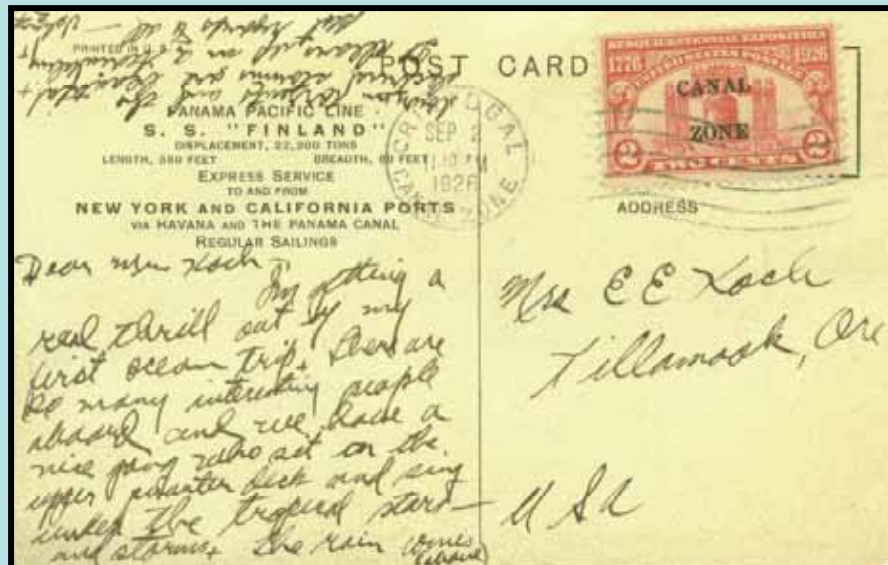 PRINTED IN U.S.A.
POST CARD
PANAMA PACIFIC LINE
S. S. "FINLAND"
DISPLACEMENT, 22,200 TONS
LENGTH, 580 FEET BREADTH, 60 FEET
EXPRESS SERVICE
TO AND FROM
NEW YORK AND CALIFORNIA PORTS
VIA HAVANA AND THE PANAMA CANAL
REGULAR SAILINGS
CRISTOBAL
SEP 2
1926
CANAL ZONE
SESQUICENTENNIAL EXPOSITION
1776 1926
UNITED STATES POSTAGE
CANAL
ZONE
2 2
TWO CENTS
ADDRESS
Mrs E E Koch
Tillamook, Ore
U S A
Dear Mrs Koch —
I'm getting a
real thrill out of my
first ocean trip. There are
so many interesting people
aboard and we have a
nice gang who sit on the
upper quarter deck and sing
under the tropical stars —
and storms. The rain comes
(above)
and the
in a
to all —